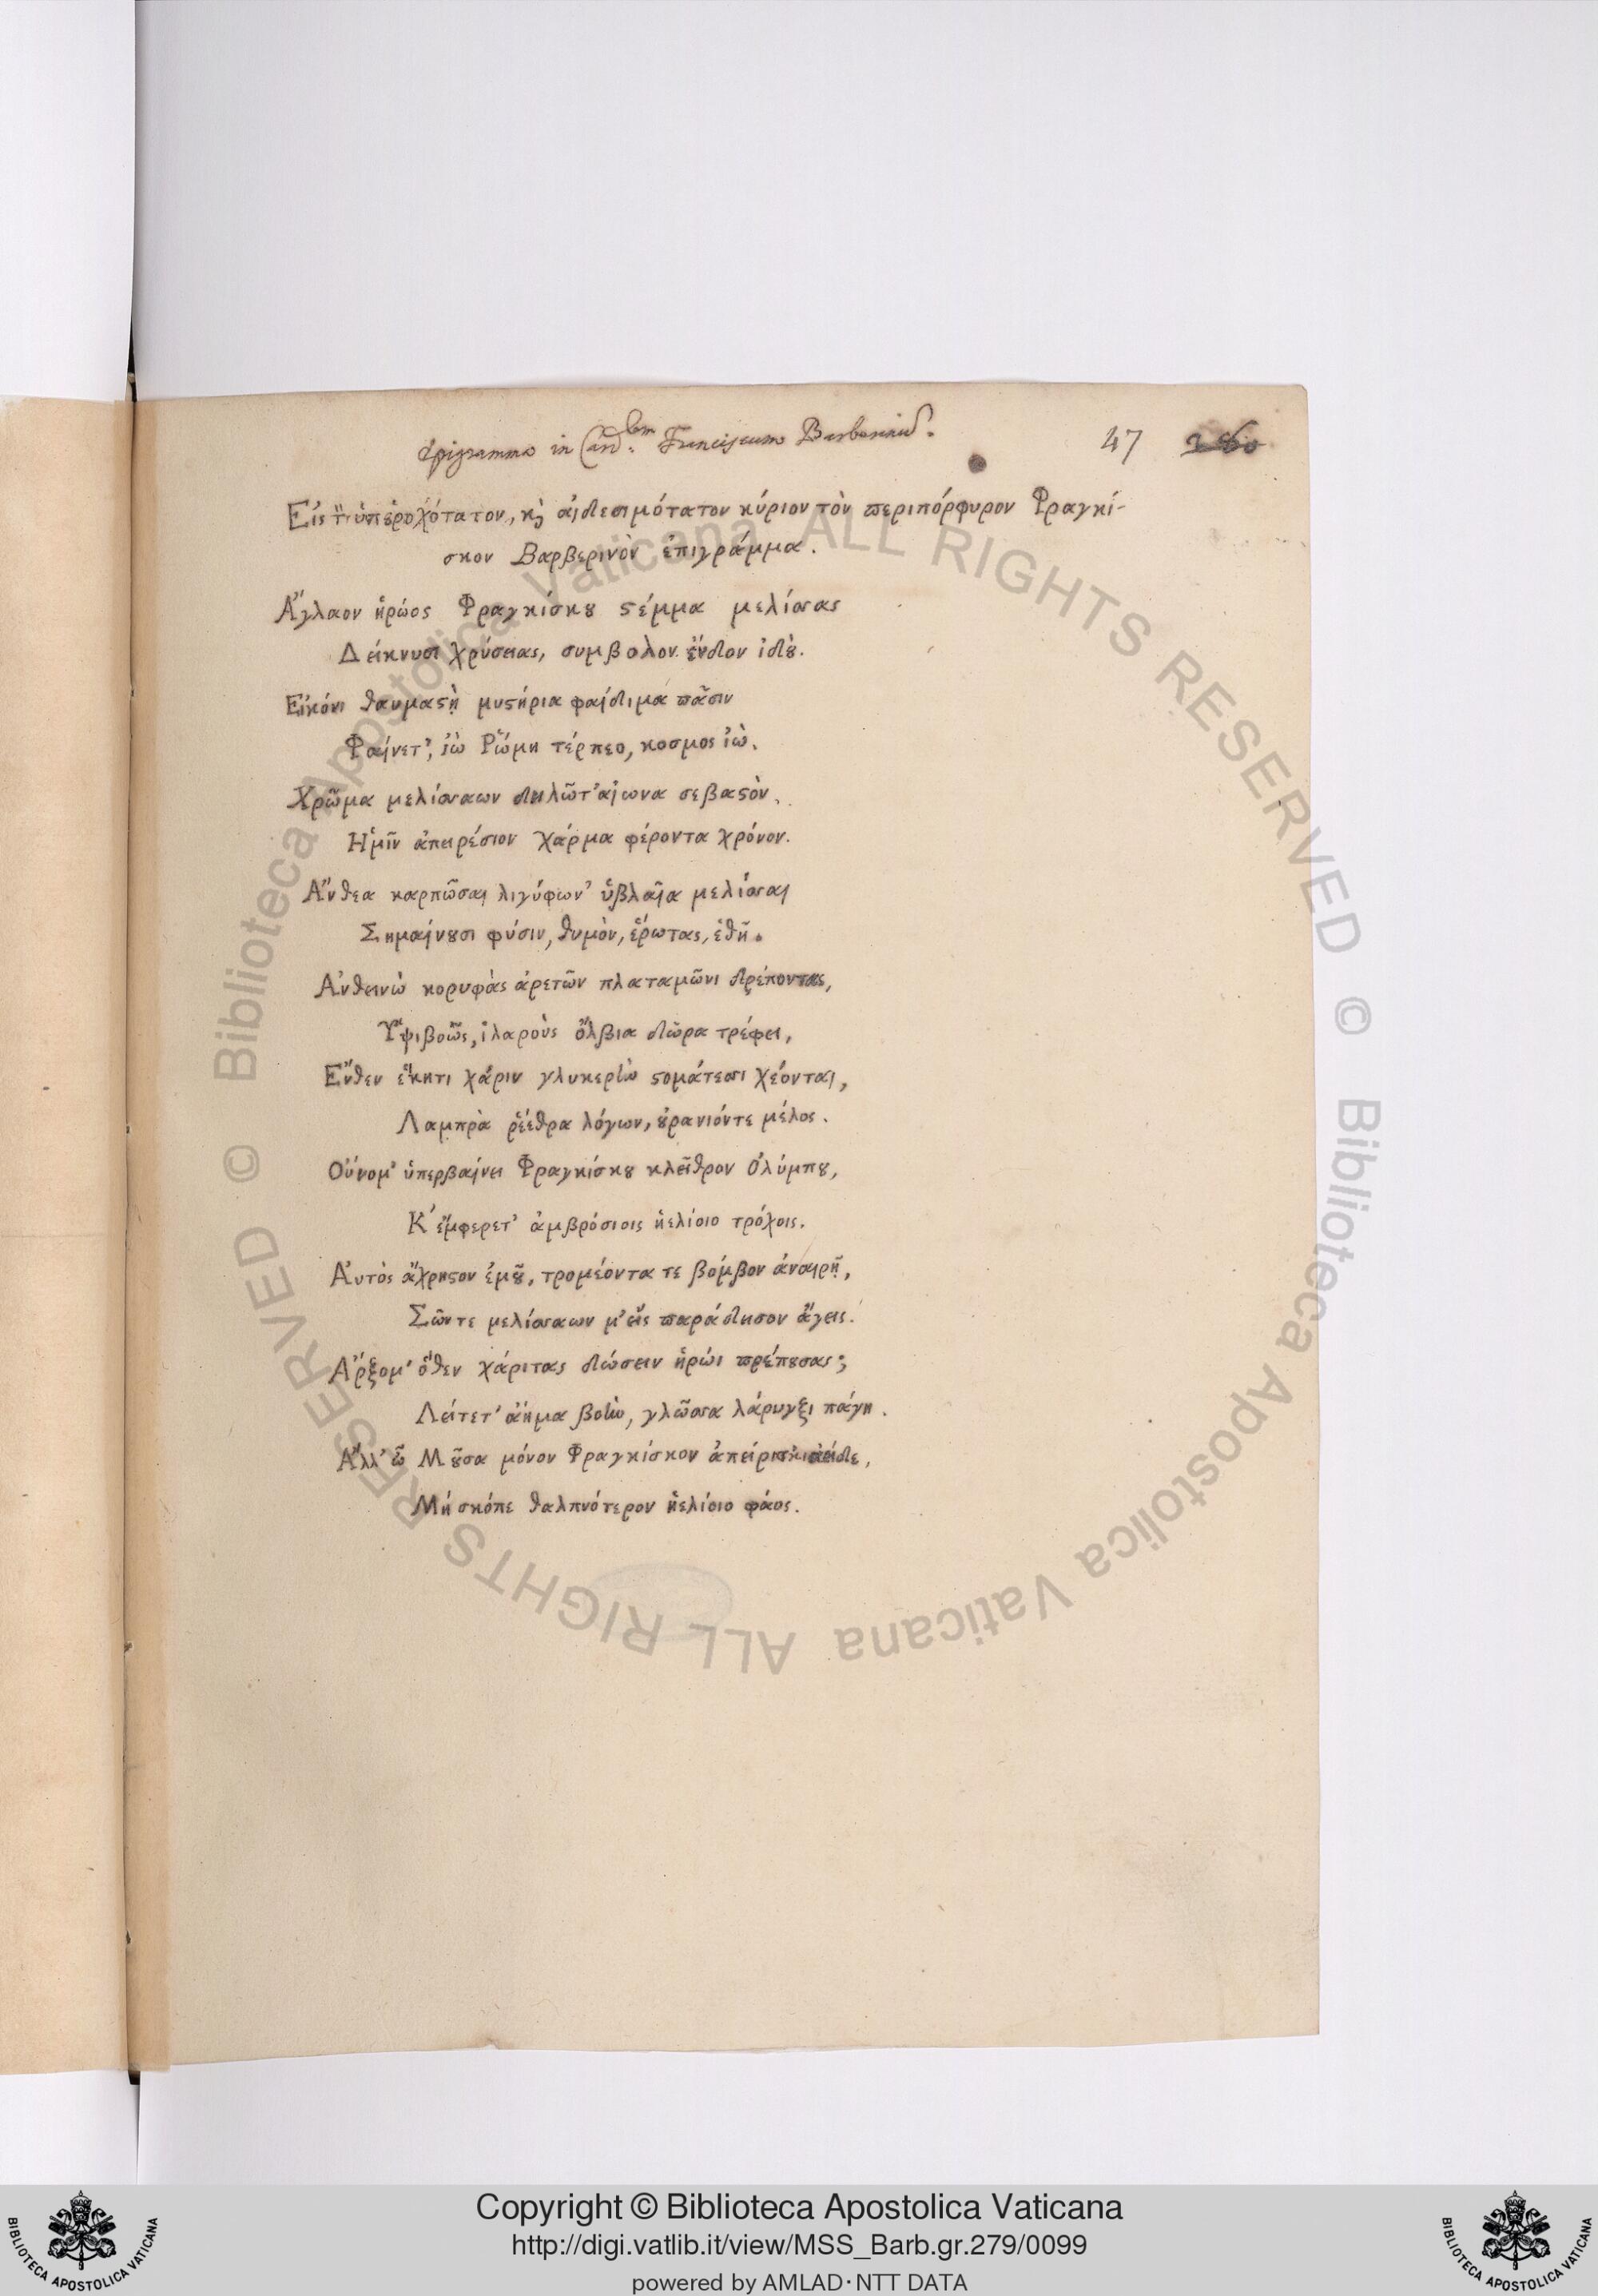 Epigramma in Card.lem Franciscum Barberinu.
47 260
Εἰς τ ὑπεροχότατον, κὶ αἰδεσιμότατον κύριον τὸν περιπόρφυρον Φραγκί-
σκον Βαρβερινὸν ἐπιγράμμα.
Ἄγλαον ἥρώος Φραγκίσκου στέμμα μελίσσας
Δείκνυσι χρύσειας, συμβολον ἔνδον ἰδὲ.
Εἰκόνι θαυμαστῇ μυστήρια φαίδιμα πᾶσιν
Φαίνετ', ἰὼ Ῥώμη τέρπεο, κοσμος ἰὼ.
Χρῶμα μελίσσαων δηλῶτ' αἰωνα σεβαστὸν,
Ἡμῖν ἀπειρέσιον χάρμα φέροντα χρόνον.
Ἄνθεα καρπῶσαι λιγύφων' ὑβλαῖα μελίσσαι
Σημαίνουσι φύσιν, θυμὸν, ἔρωτας, ἔθη.
Ἀνθεινὼ κορυφὰς ἀρετῶν πλαταμῶνι δρέποντας,
Ὑψιβοῶς, ἱλαροὺς ὄλβια δῶρα τρέφει,
Ἔνθεν ἕκητι χάριν γλυκερὴν στομάτεσσι χέονται,
Λαμπρὰ ῥέεθρα λόγων, οὐρανιόντε μέλος.
Οὔνομ' ὑπερβαίνει Φραγκίσκου κλεῖθρον Ὀλύμπου,
Κ' ἔμφερετ' ἀμβρόσιοις ἠελίοιο τρόχοις.
Αὐτὸς ἄχρηστον ἐμοῦ, τρομέοντα τε βόμβον ἀναιρῇ,
Σῶντε μελίσσαων μ' εἰς παράδησον ἄγεις.
Ἄρξομ' ὅθεν χάριτας δώσειν ἥρώι πρέπουσας;
Λείπετ' ἄημα βοὴν, γλῶσσα λάρυγξι πάγη.
Ἄλλ' ὦ Μοῦσα μόνον Φραγκίσκον ἄειδε,
Μή σκόπε θαλπνότερον ἠελίοιο φάος.
Copyright © Biblioteca Apostolica Vaticana
http://digi.vatlib.it/view/MSS_Barb.gr.279/0099
powered by AMLAD·NTT DATA
BIBLIOTECA APOSTOLICA VATICANA
BIBLIOTECA APOSTOLICA VATICANA
© Biblioteca Apostolica Vaticana ALL RIGHTS RESERVED © Biblioteca Apostolica Vaticana ALL RIGHTS RESERVED